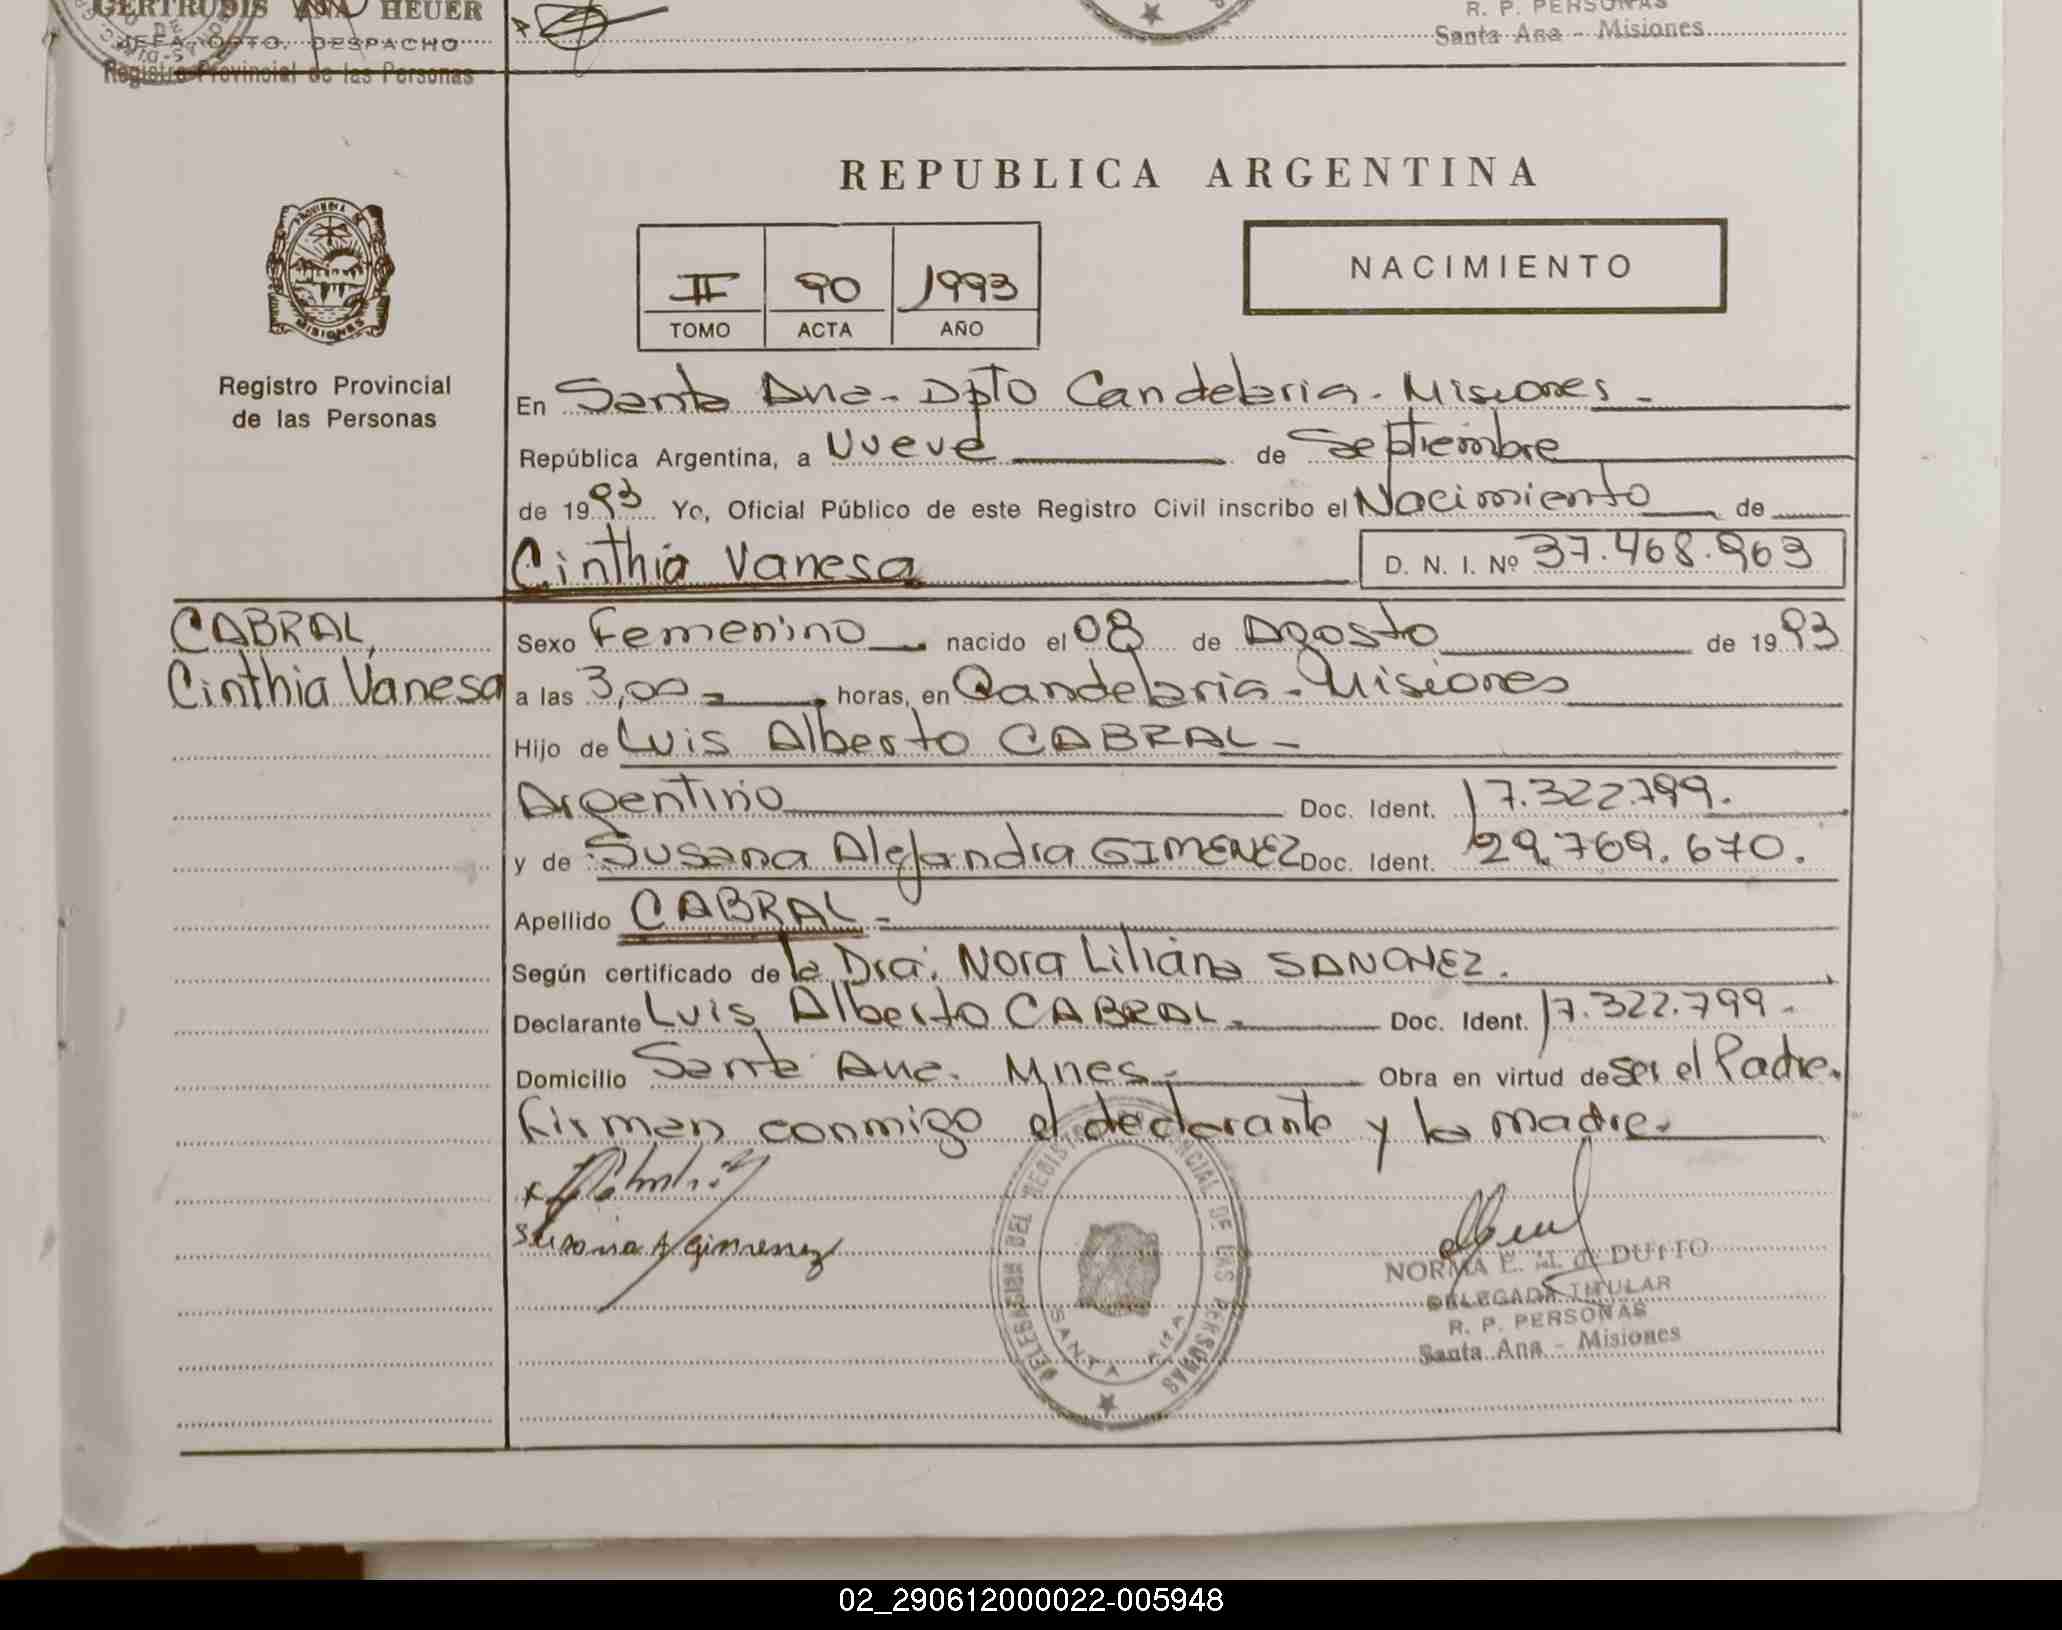 GERTRUDIS ANA HEUER
JEFA DPTO. DESPACHO
Registro Provincial de las Personas
R. P. PERSONAS
Santa Ana - Misiones
REPUBLICA ARGENTINA
II 90 1993
TOMO ACTA AÑO
NACIMIENTO
PROVINCIA DE
MISIONES
Registro Provincial
de las Personas
En Santa Ana - Dpto Candelaria - Misiones -
República Argentina, a Nueve de Septiembre
de 1993 Yo, Oficial Público de este Registro Civil inscribo el Nacimiento de
Cinthia Vanesa D. N. I. Nº 37.468.963
CABRAL,
Cinthia Vanesa
Sexo Femenino nacido el 08 de Agosto de 1993
a las 3,00 horas, en Candelaria - Misiones
Hijo de Luis Alberto CABRAL -
Argentino Doc. Ident. 17.322.799.
y de Susana Alejandra GIMENEZ Doc. Ident. 29.769.670.
Apellido CABRAL -
Según certificado de la Dra. Nora Liliana SANCHEZ.
Declarante Luis Alberto CABRAL - Doc. Ident. 17.322.799 -
Domicilio Santa Ana - Mnes - Obra en virtud de ser el Padre.
Firman conmigo el declarante y la madre.
Susana A Gimenez
DELEGACION DEL REGISTRO PROVINCIAL DE LAS PERSONAS
SANTA ANA
NORMA E. M. de DUTTO
DELEGADA TITULAR
R. P. PERSONAS
Santa Ana - Misiones
02_290612000022-005948